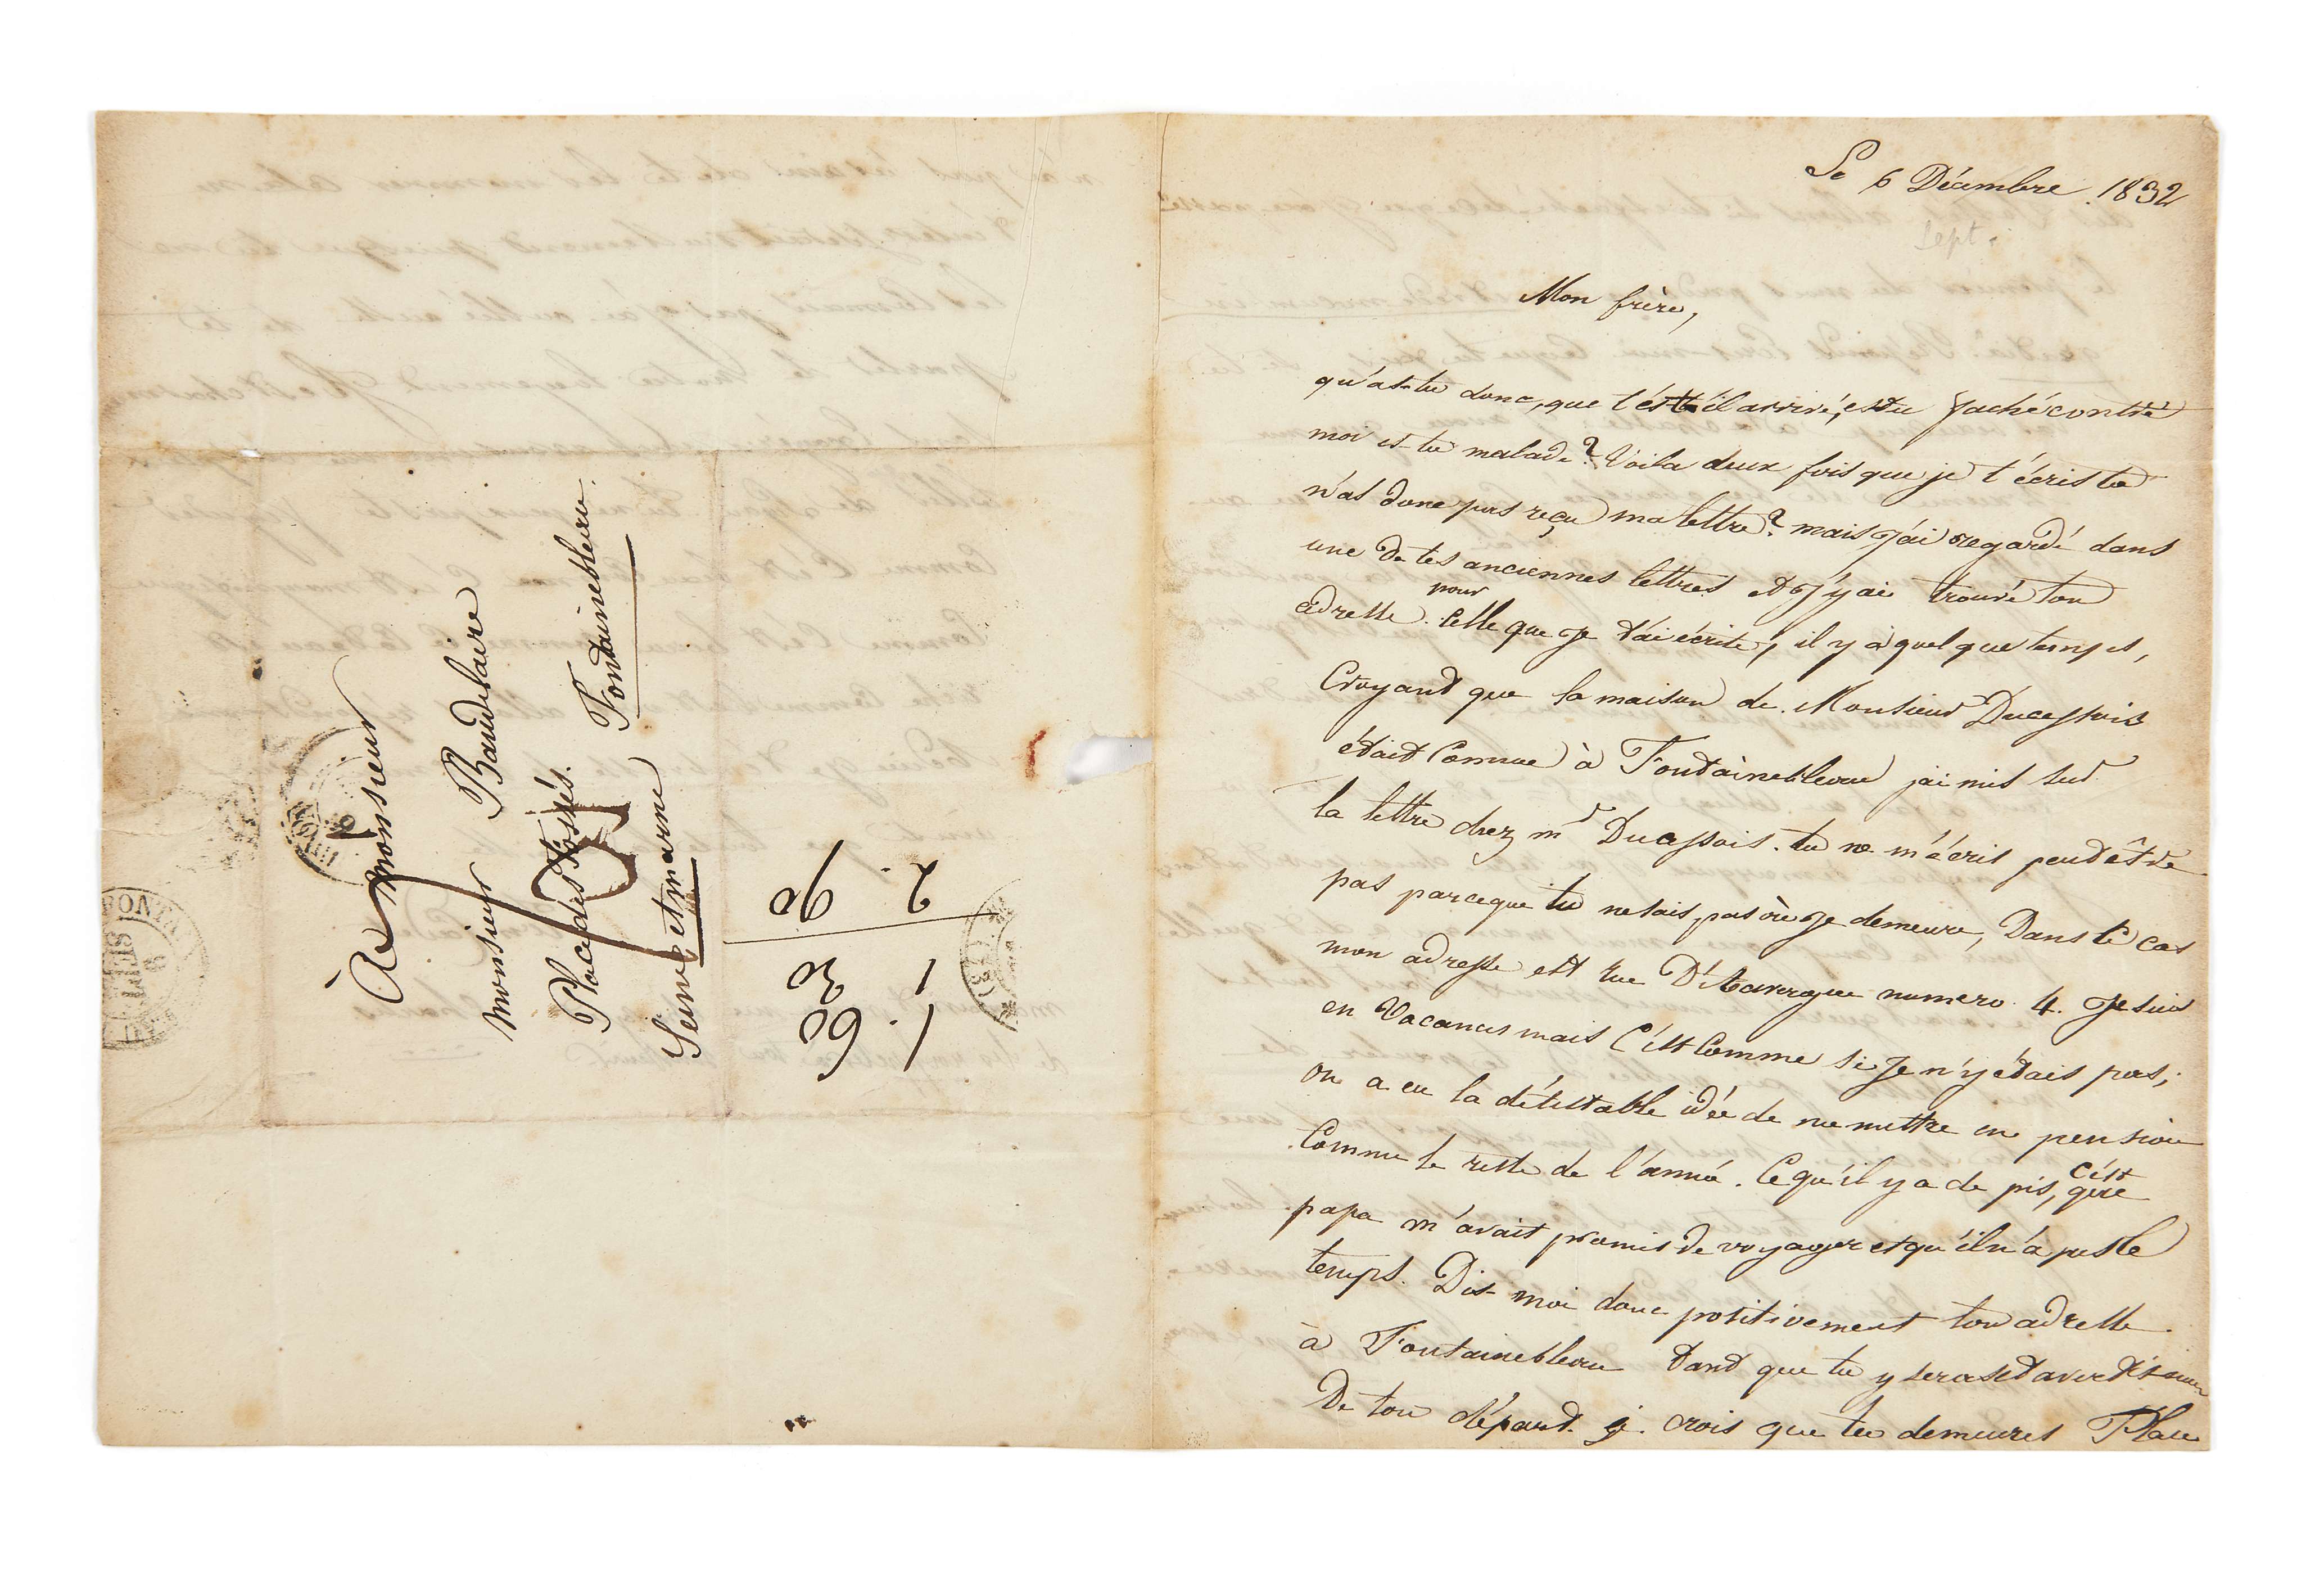 À monsieur
monsieur Baudelaire
Place des Fossés. Fontainebleau.
Seine et marne
1. 60
1 30
2. 90
Le 6 Décembre. 1832
Sept.
Mon frère,
qu'as-tu donc, que t'est-il arrivé, es-tu faché contre
moi es-tu malade? Voila deux fois que je t'écris tu
n'as donc pas reçu ma lettre? mais j'ai regardé dans
une de tes anciennes lettres et j'y ai trouvé ton
adresse. pour Celle que je t'ai écrite, il y à quelque temps,
Croyant que la maison de Monsieur Ducessois
était Connue à Fontainebleau jai mis sur
la lettre chez mr Ducessois. tu ne m'écris peut être
pas parceque tu ne sais pas où je demeure, Dans ce cas
mon adresse est rue D'Auvergne numero 4. Je suis
en Vacances mais C'est Comme si Je n'y étais pas;
on a eu la détestable idée de me mettre en pension
Comme le reste de l'année. Ce qu'il y a de pis, c'est que
papa m'avait promis de voyager et qu'il n'a pas le
temps. Dis-moi donc positivement ton adresse
à Fontainebleau tant que tu y seras et avertis-moi
De ton départ. je crois que tu demeures Place